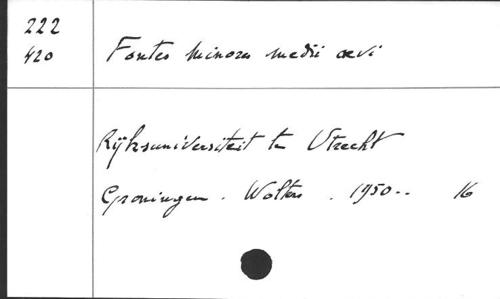 222
420
Fontes minores medii aevi
Rijksuniversiteit te Utrecht
Groningen . Wolters . 1950-- 16